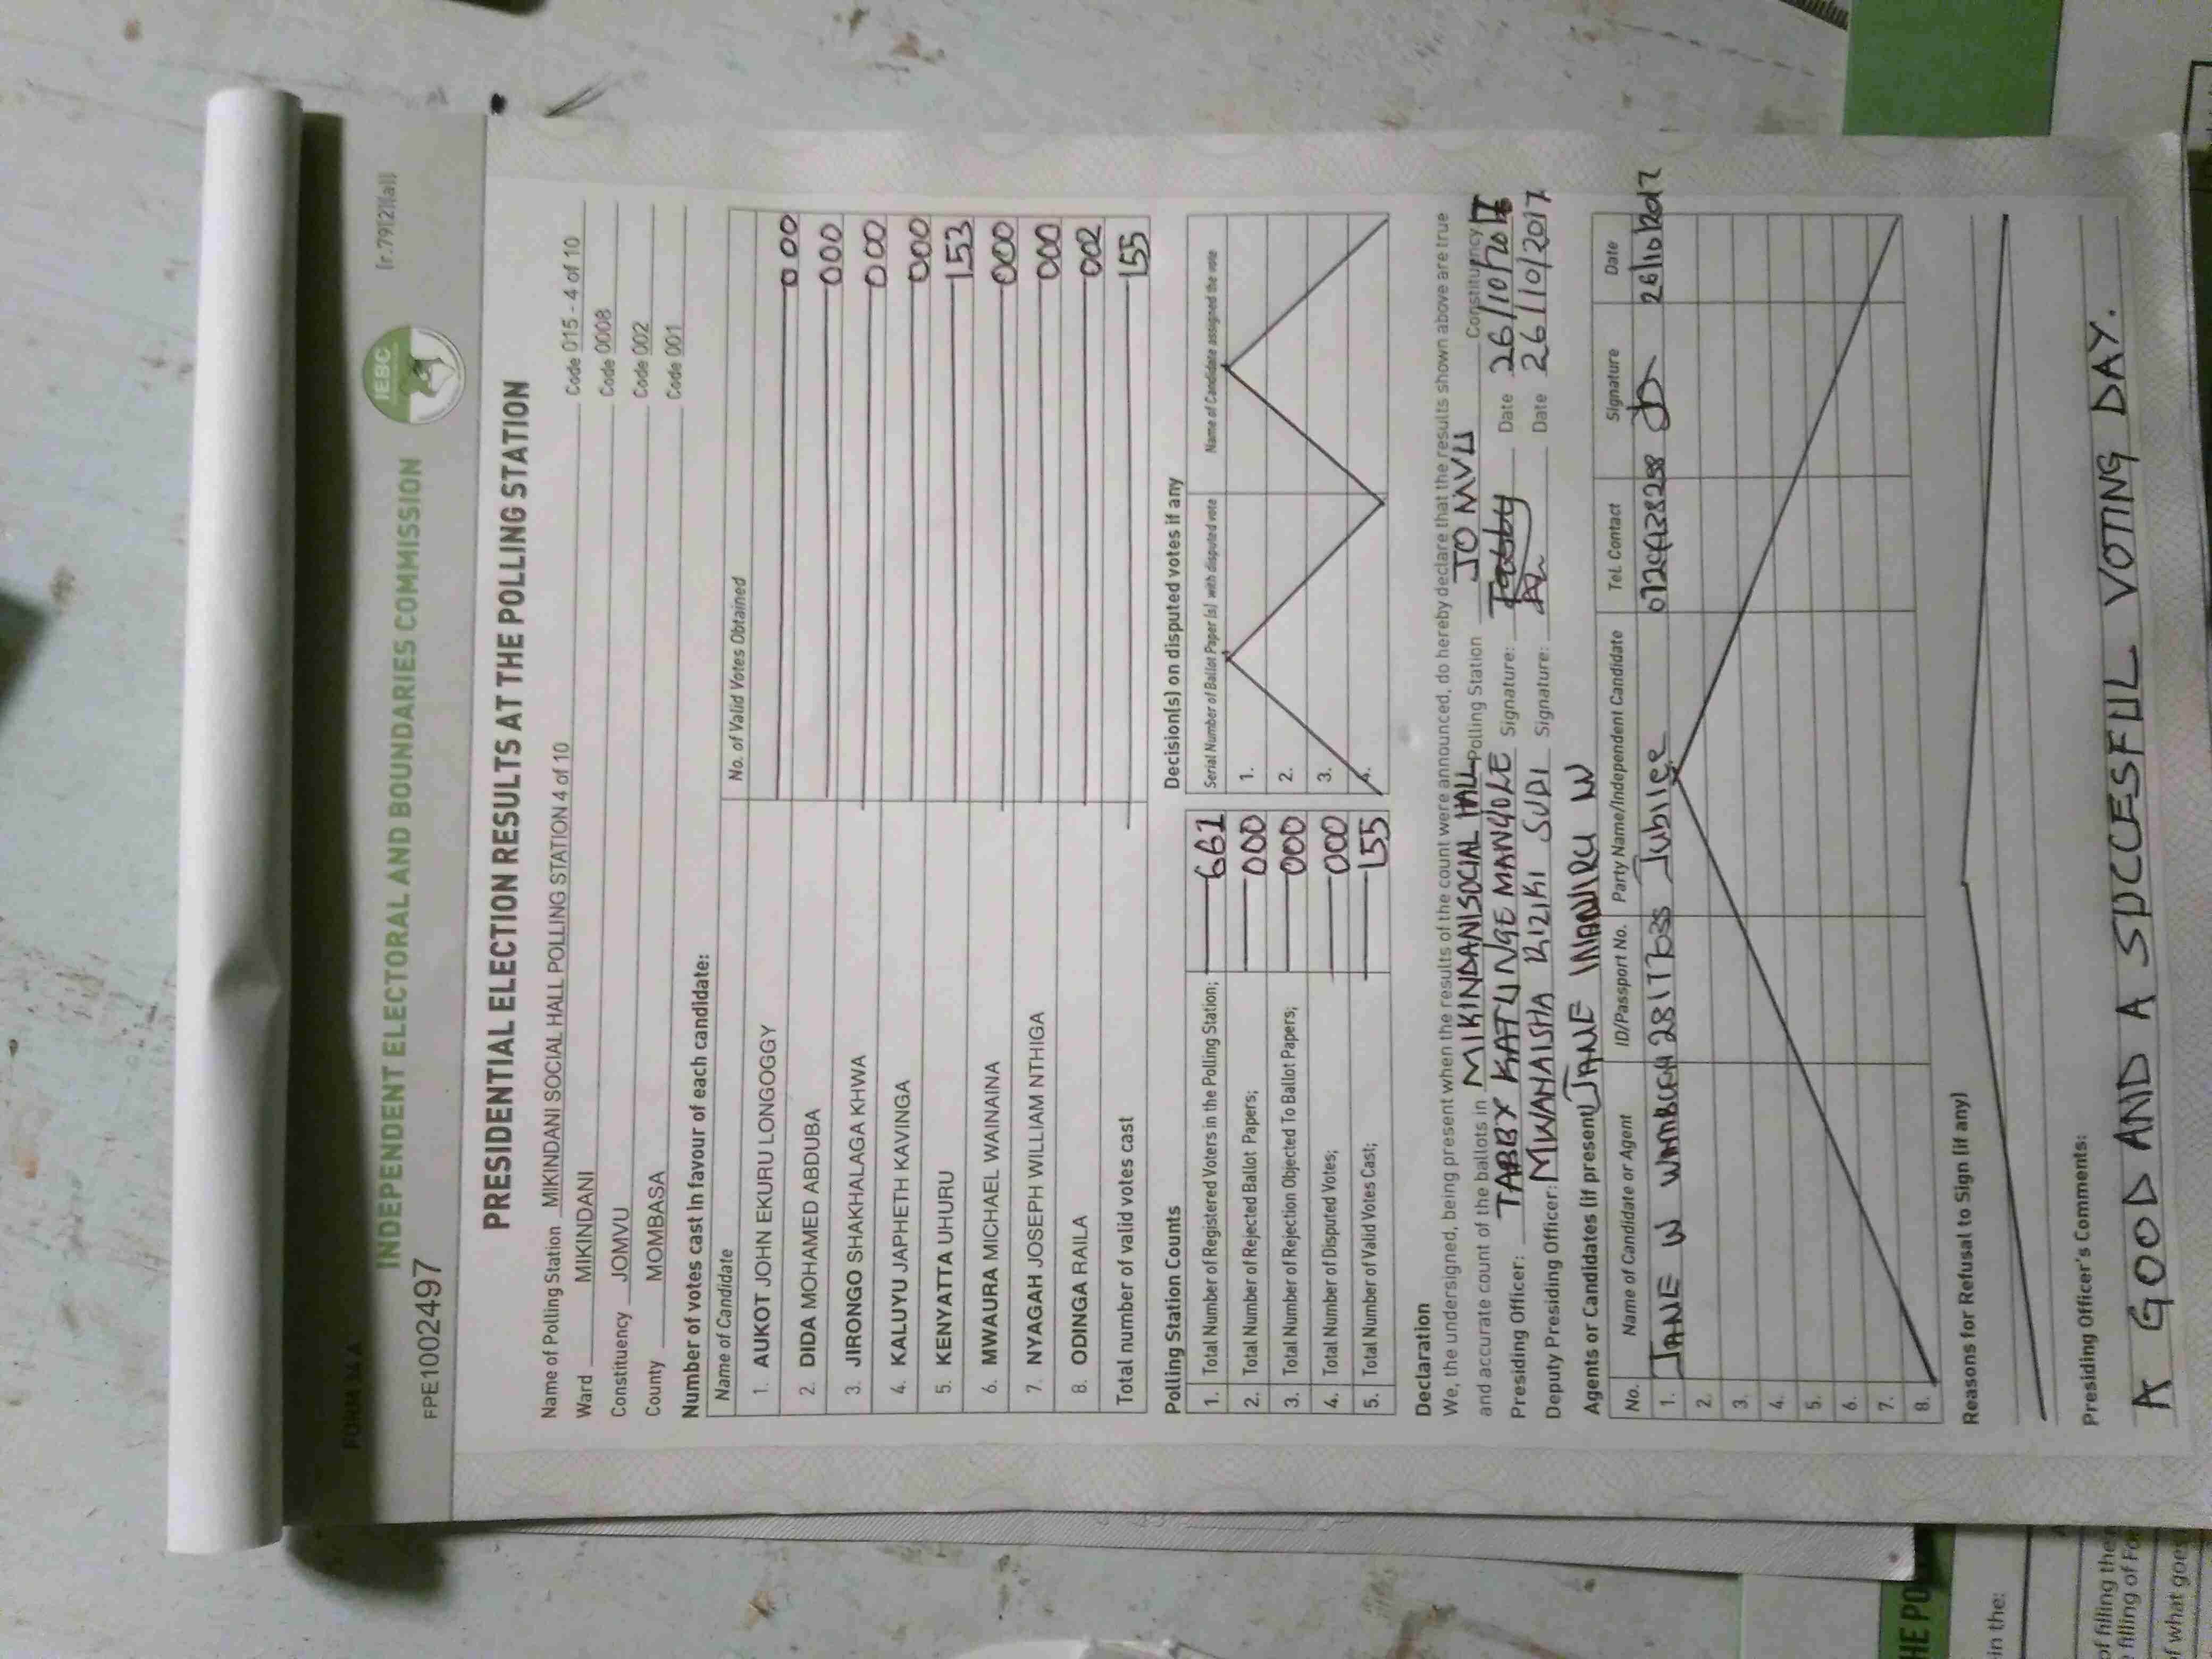 FORM 34 A
[r.79(2)(a)]
IEBC
INDEPENDENT ELECTORAL AND BOUNDARIES COMMISSION
FPE1002497
PRESIDENTIAL ELECTION RESULTS AT THE POLLING STATION
Name of Polling Station MIKINDANI SOCIAL HALL POLLING STATION 4 of 10 Code 015 - 4 of 10
Ward MIKINDANI Code 0008
Constituency JOMVU Code 002
County MOMBASA Code 001
Number of votes cast in favour of each candidate:
Name of Candidate No. of Valid Votes Obtained
1. AUKOT JOHN EKURU LONGOGGY 000
2. DIDA MOHAMED ABDUBA 000
3. JIRONGO SHAKHALAGA KHWA 000
4. KALUYU JAPHETH KAVINGA 000
5. KENYATTA UHURU 153
6. MWAURA MICHAEL WAINAINA 000
7. NYAGAH JOSEPH WILLIAM NTHIGA 000
8. ODINGA RAILA 002
Total number of valid votes cast 155
Polling Station Counts
1. Total Number of Registered Voters in the Polling Station; 661
2. Total Number of Rejected Ballot Papers; 000
3. Total Number of Rejection Objected To Ballot Papers; 000
4. Total Number of Disputed Votes; 000
5. Total Number of Valid Votes Cast; 155
Decision(s) on disputed votes if any
Serial Number of Ballot Paper (s) with disputed vote Name of Candidate assigned the vote
1.
2.
3.
4.
Declaration
We, the undersigned, being present when the results of the count were announced, do hereby declare that the results shown above are true
and accurate count of the ballots in MIKINDANI SOCIAL HALL Polling Station JOMVU Constituency
Presiding Officer: TABBY KATUNGE MANGOLE Signature: Date 26/10/2017
Deputy Presiding Officer: MWANAISHA RIZIKI SUDI Signature: Date 26/10/2017
Agents or Candidates (if present) JANE WANJIRU W
No. Name of Candidate or Agent ID/Passport No. Party Name/Independent Candidate Tel. Contact Signature Date
1. JANE W Jubilee 26/10/2017
2.
3.
4.
5.
6.
7.
8.
Reasons for Refusal to Sign (if any)
Presiding Officer's Comments:
A GOOD AND A SUCCESFUL VOTING DAY.
THE PO
in the:
of filling the
filling of Fo
f what goes